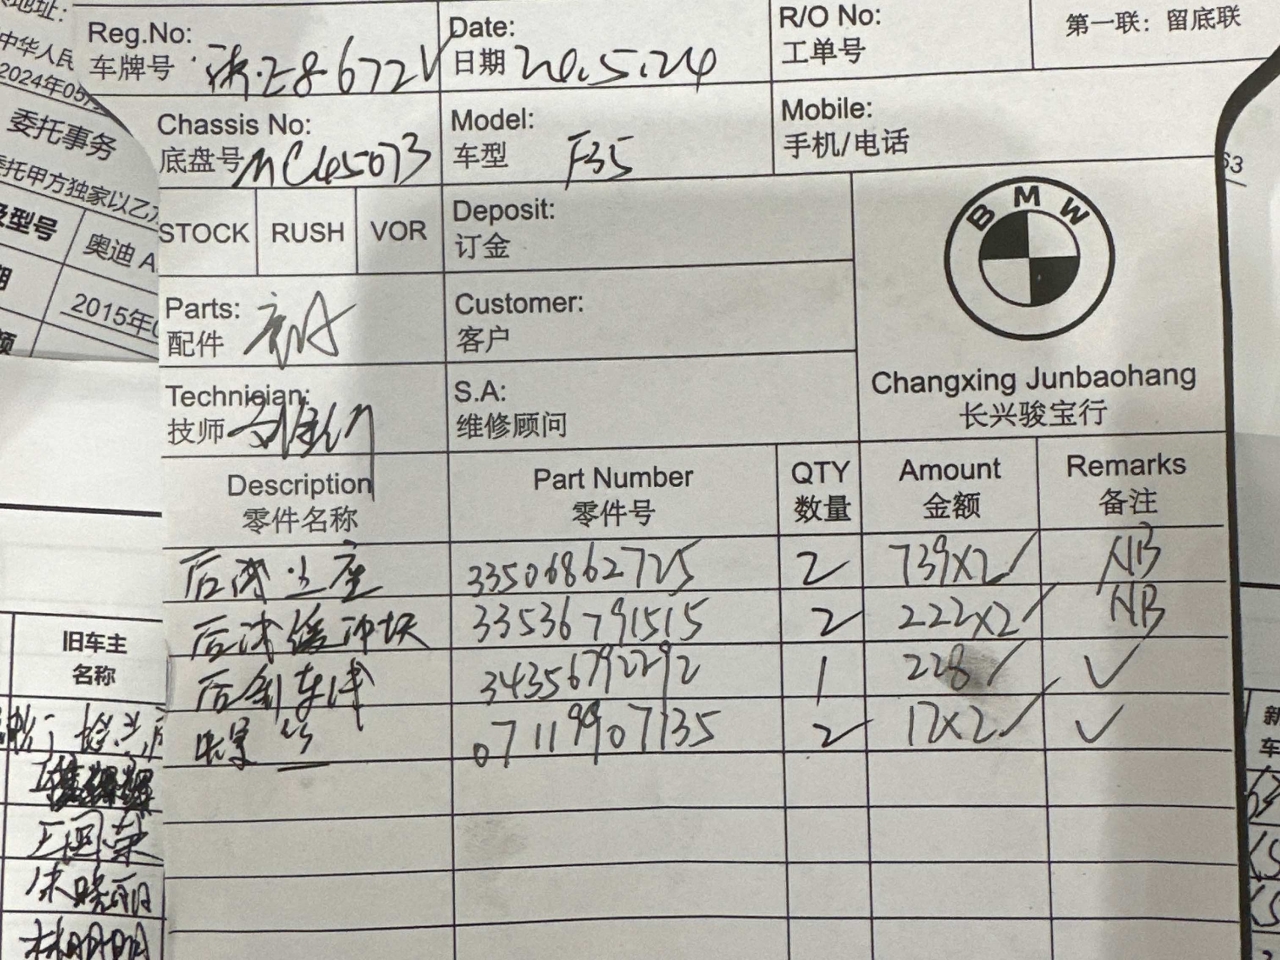 第一联：留底联
Reg.No:
车牌号
浙·E8672V
Date:
日期
24.5.24
R/O No:
工单号
中华人民
2024年05
委托事务
委托甲方独家以乙
及型号
奥迪 A
2015年
Chassis No:
底盘号
MC45073
Model:
车型
F35
Mobile:
手机/电话
53
STOCK
RUSH
VOR
Deposit:
订金
BMW
Parts:
配件
Customer:
客户
Technician:
技师
S.A:
维修顾问
Changxing Junbaohang
长兴骏宝行
Description
零件名称
Part Number
零件号
QTY
数量
Amount
金额
Remarks
备注
后减 上座 33506862725 2 739X2 NB
后减缓冲块 33536791515 2 222X2 NB
后刹车 34356792292 1 228 ✓
07119907135 2 17X2 ✓
旧车主
名称
新
车